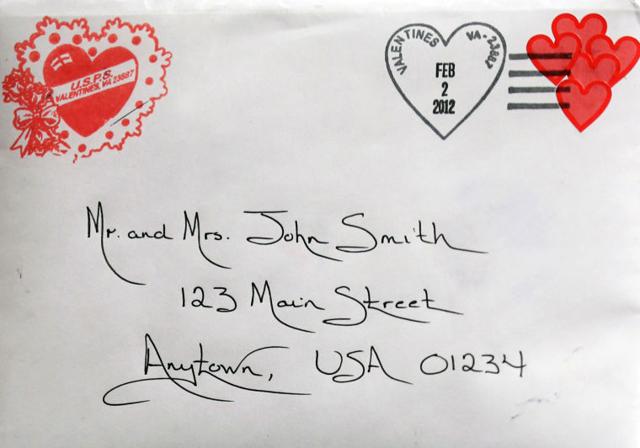 U.S.P.S.
VALENTINES, VA 23887
VALENTINES VA - 23887
FEB
2
2012
Mr. and Mrs. John Smith
123 Main Street
Anytown, USA 01234